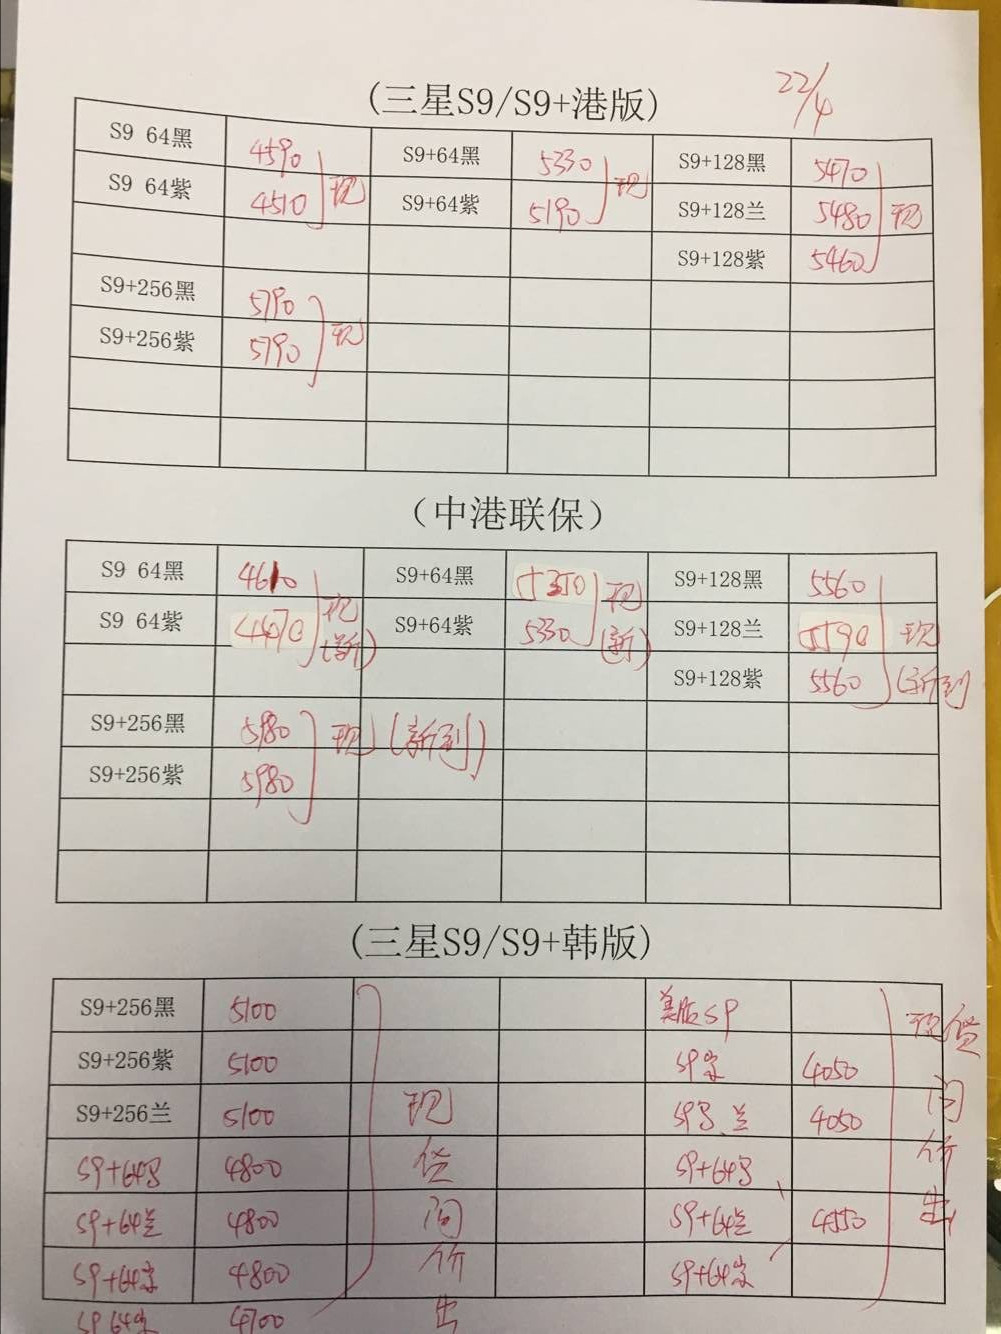 (三星S9/S9+港版) 22/4
S9 64黑 4590 S9+64黑 5330 S9+128黑 5470
S9 64紫 4510 现 S9+64紫 5190 现 S9+128兰 5480 现
S9+128紫 5460
S9+256黑 5790
S9+256紫 5790 现
(中港联保)
S9 64黑 4610 S9+64黑 5350 现 S9+128黑 5560
S9 64紫 4470 现(新) S9+64紫 5330 (新) S9+128兰 5590 现
S9+128紫 5560 (新到
S9+256黑 5980 现(新到)
S9+256紫 5980
(三星S9/S9+韩版)
S9+256黑 5100 美版S9
S9+256紫 5100 S9紫 4050
S9+256兰 5100 S9黑、兰 4050
S9+64黑 4800 S9+64黑
S9+64兰 4800 S9+64兰 4550
S9+64紫 4800 S9+64紫
S9 64紫 4700
现货问价出
现货问价出